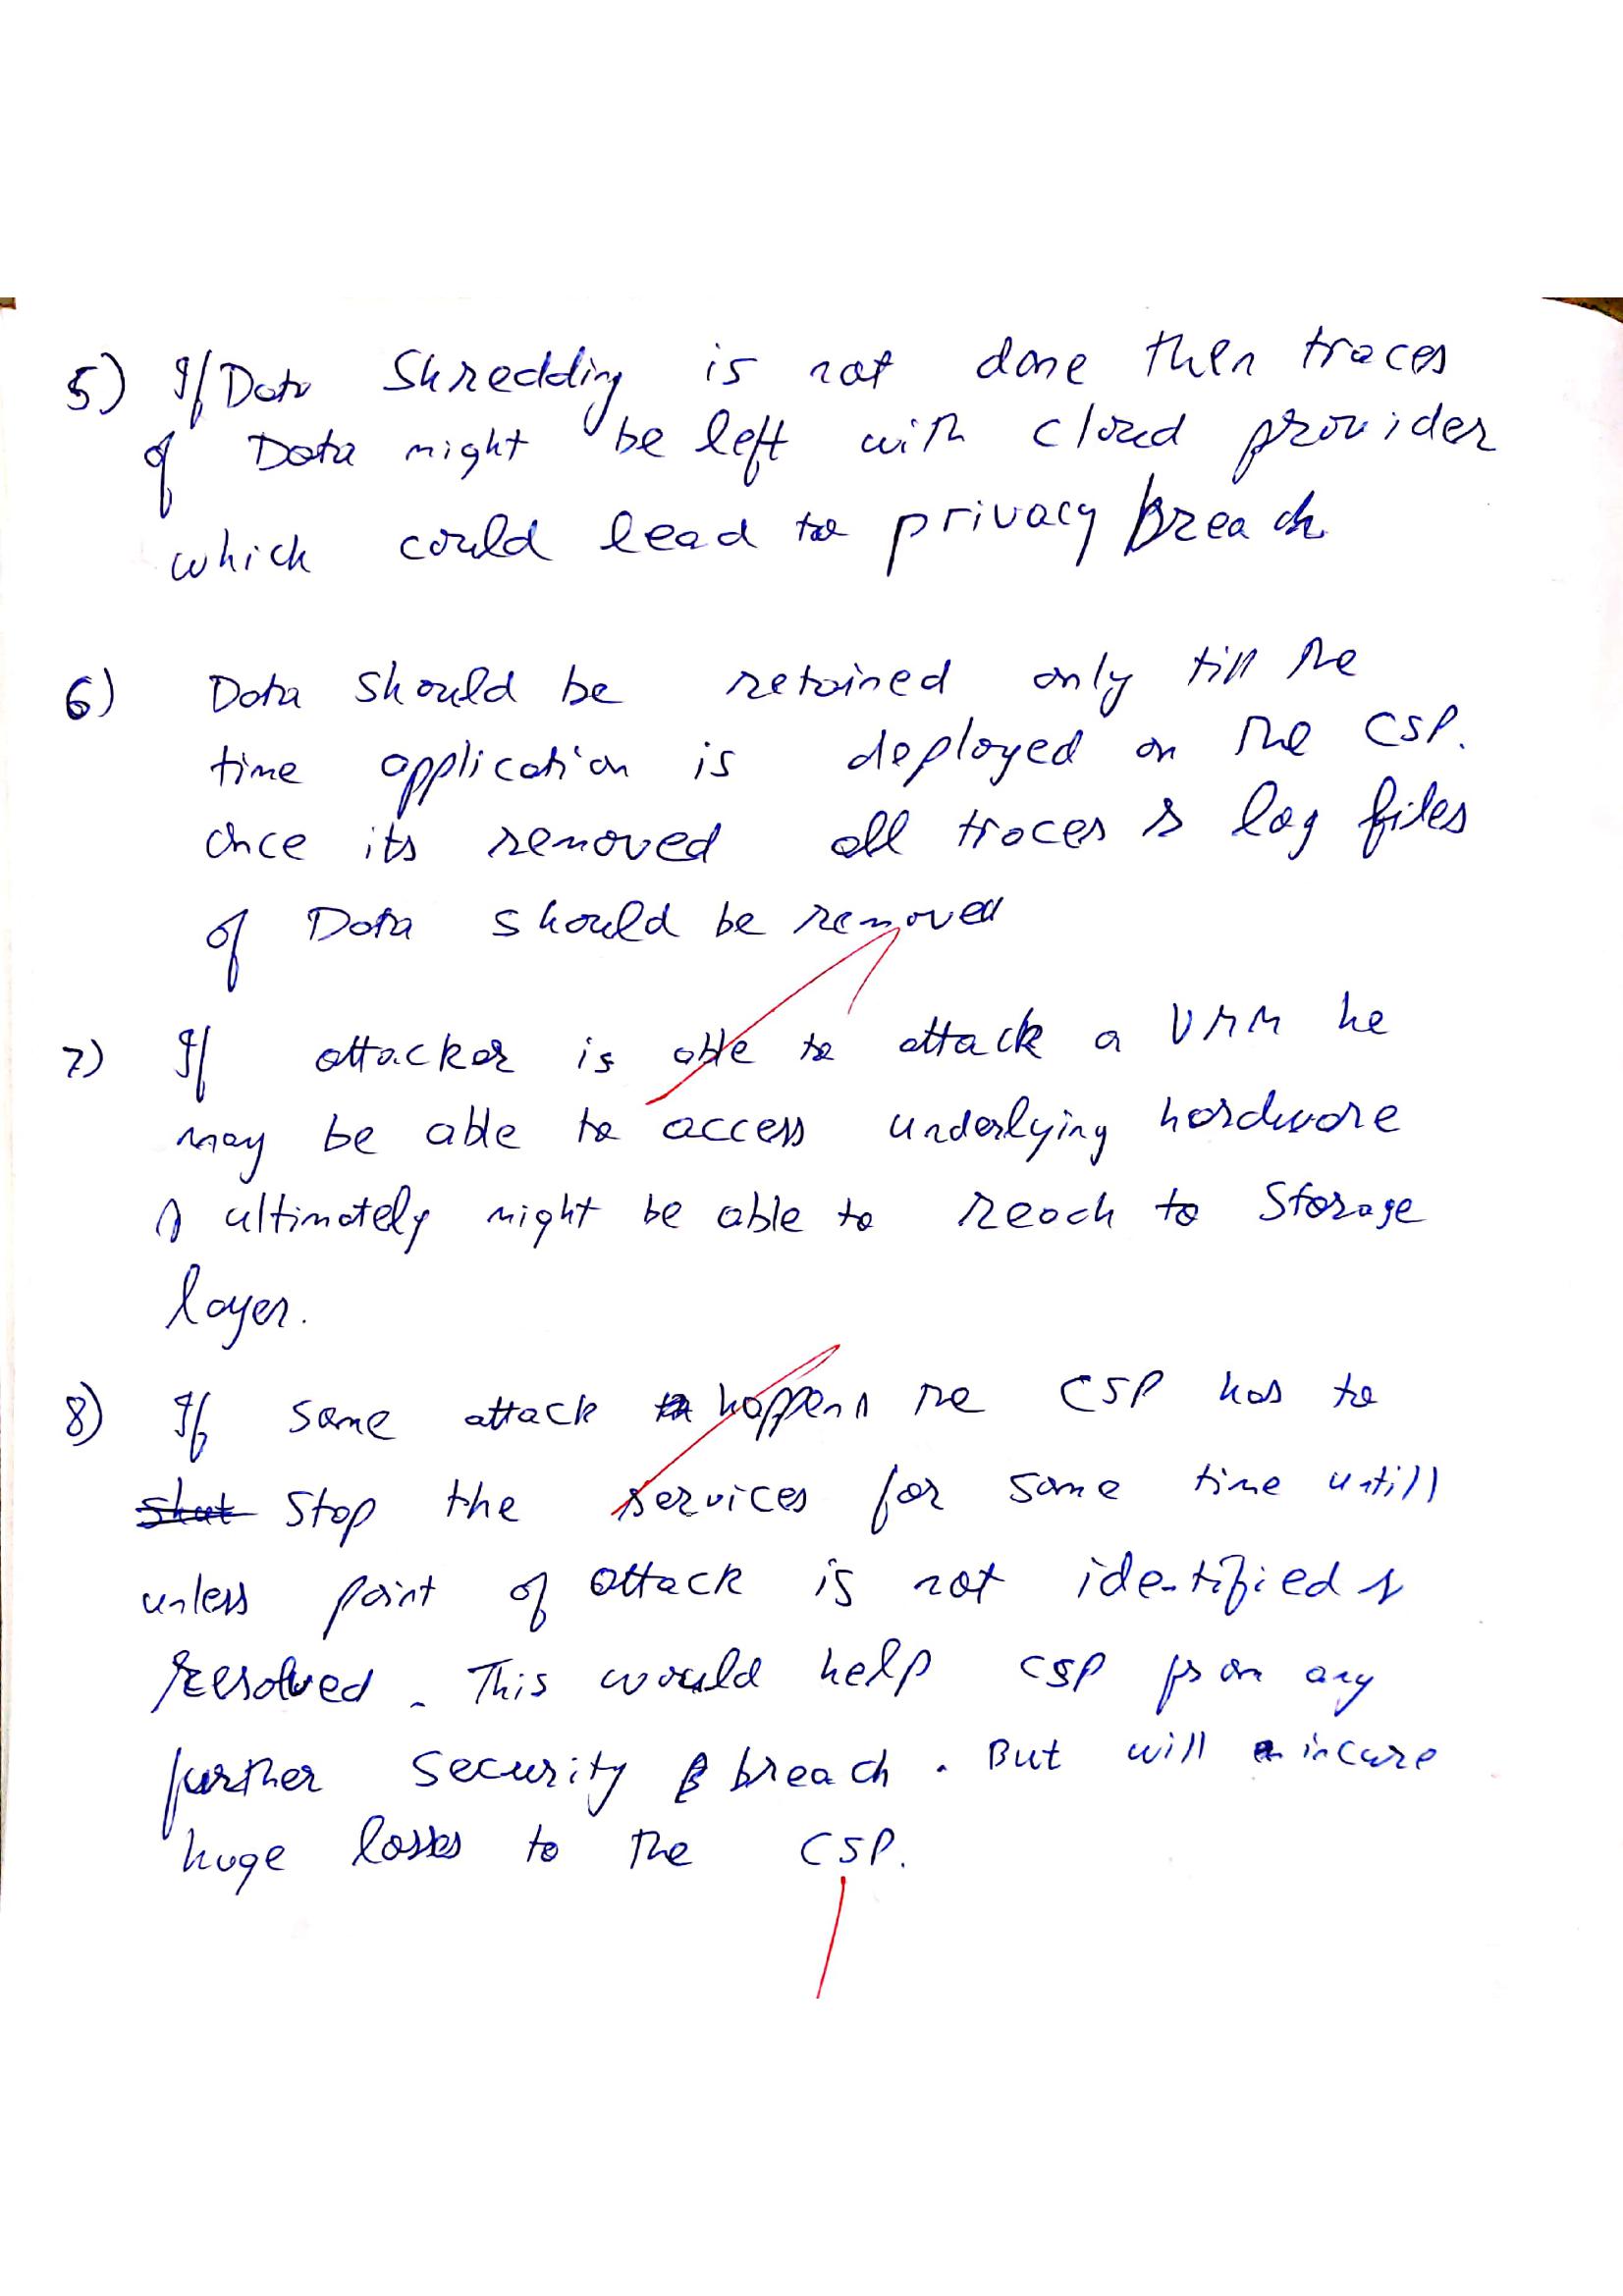 5) If Data Shredding is not done then traces
of Data might be left with cloud provider
which could lead to privacy Breach
6) Data should be retained only till the
time application is deployed on the CSP.
Once its removed all traces & log files
of Data should be removed
7) If attacker is able to attack a VMM he
may be able to access underlying hardware
& ultimately might be able to reach to Storage
layer.
8) If some attack happens the CSP has to
shut Stop the services for some time untill
unless point of attack is not identified &
resolved. This would help CSP from any
further security breach. But will incure
huge losses to the CSP.